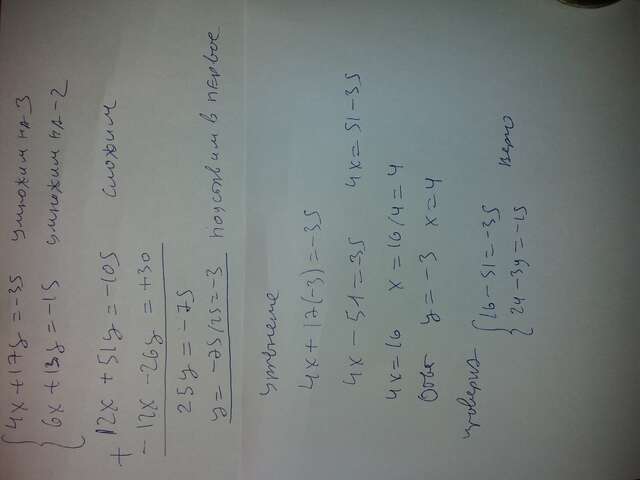 4x + 17y = -35 умножим на 3
6x + 13y = -15 умножим на -2
+ 12x + 51y = -105 сложим
- 12x - 26y = +30
25y = -75
y = -75/25 = -3 подставим в первое
уравнение
4x + 17(-3) = -35
4x - 51 = 35 4x = 51 - 35
4x = 16 x = 16/4 = 4
Ответ y = -3 x = 4
проверка
16 - 51 = -35
24 - 39 = -15 верно